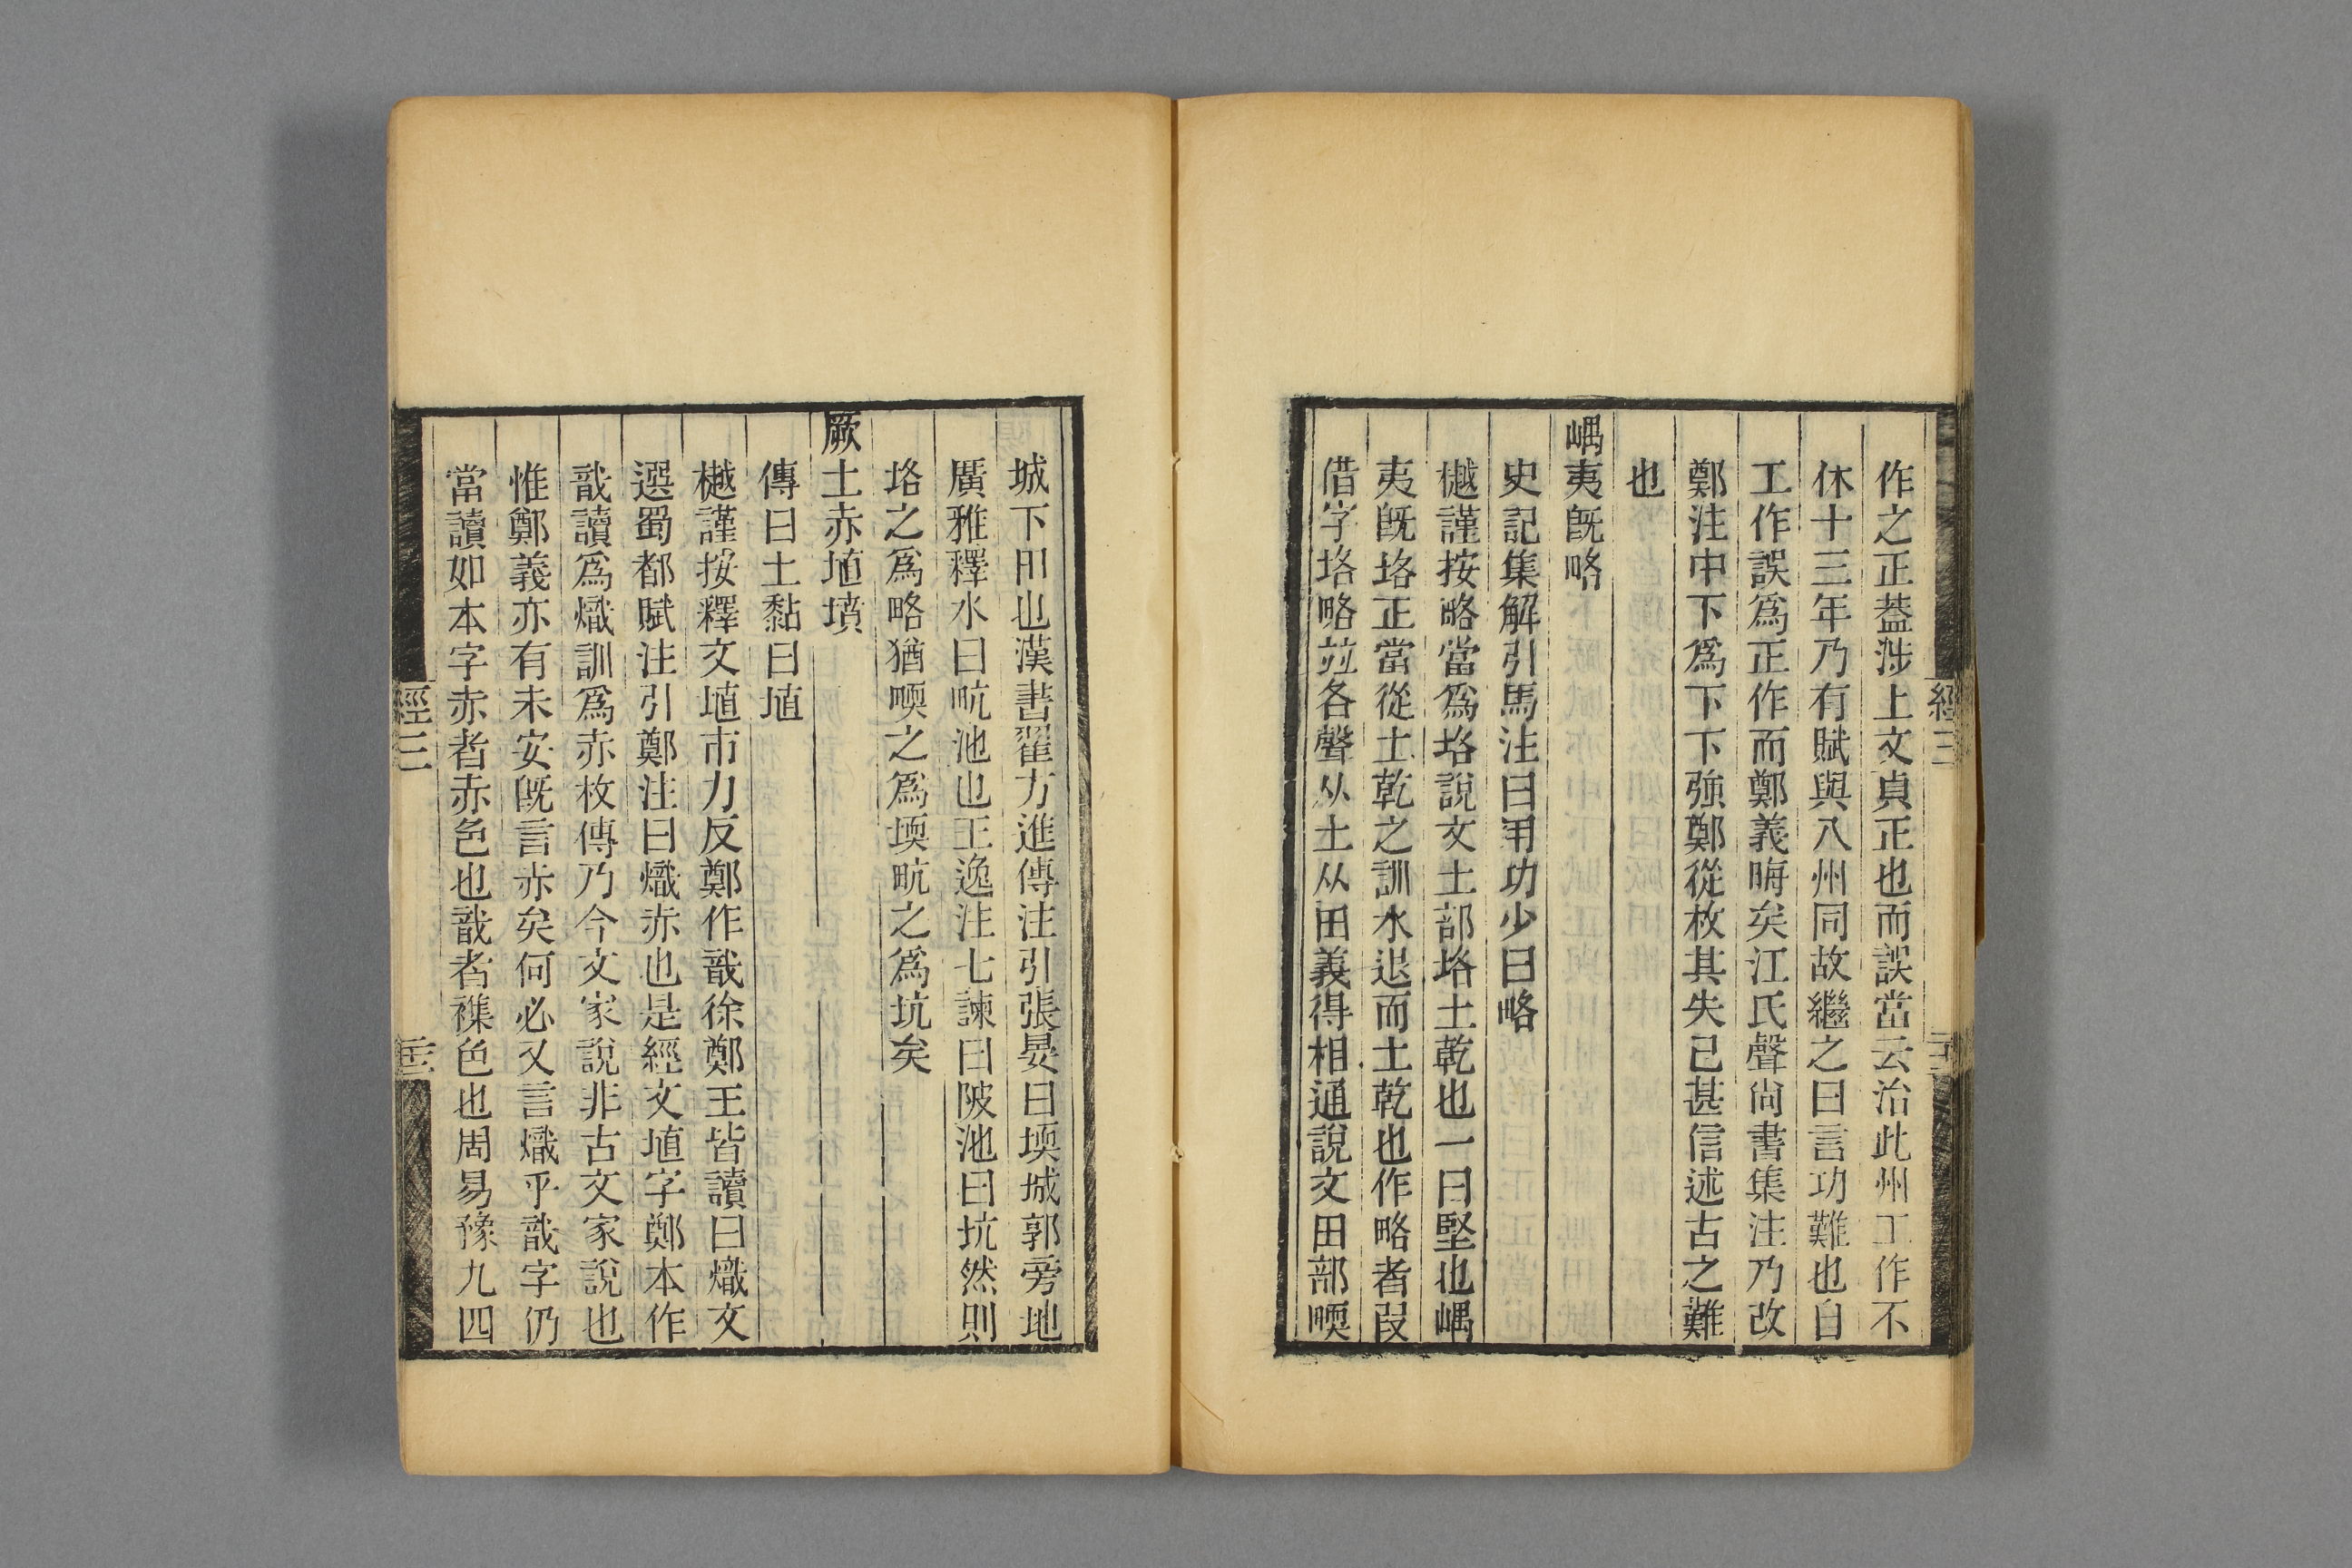 作之正葢涉上文貞正也而誤當云治此州工作不
休十三年乃有賦與八州同故繼之曰言功難也自
工作誤爲正作而鄭義晦矣江氏聲尙書集注乃改
鄭注中下爲下下强鄭從枚其失已甚信述古之難
也
嵎夷旣略
史記集解引馬注曰用功少曰略
樾謹按略當爲垎說文土部垎土乾也一曰堅也嵎
夷旣垎正當從土乾之訓水退而土乾也作略者叚
借字垎略竝各聲从土从田義得相通說文田部㽭
經三
城下田也漢書翟方進傳注引張晏曰堧城郭旁地
廣雅釋水曰㽘池也王逸注七諫曰陂池曰坑然則
垎之爲略猶㽭之爲堧㽘之爲坑矣
厥土赤埴墳
傳曰土黏曰埴
樾謹按釋文埴市力反鄭作戠徐鄭王皆讀曰熾文
選蜀都賦注引鄭注曰熾赤也是經文埴字鄭本作
戠讀爲熾訓爲赤枚傳乃今文家說非古文家說也
惟鄭義亦有未安旣言赤矣何必又言熾乎戠字仍
當讀如本字赤者赤色也戠者襍色也周易豫九四
經三